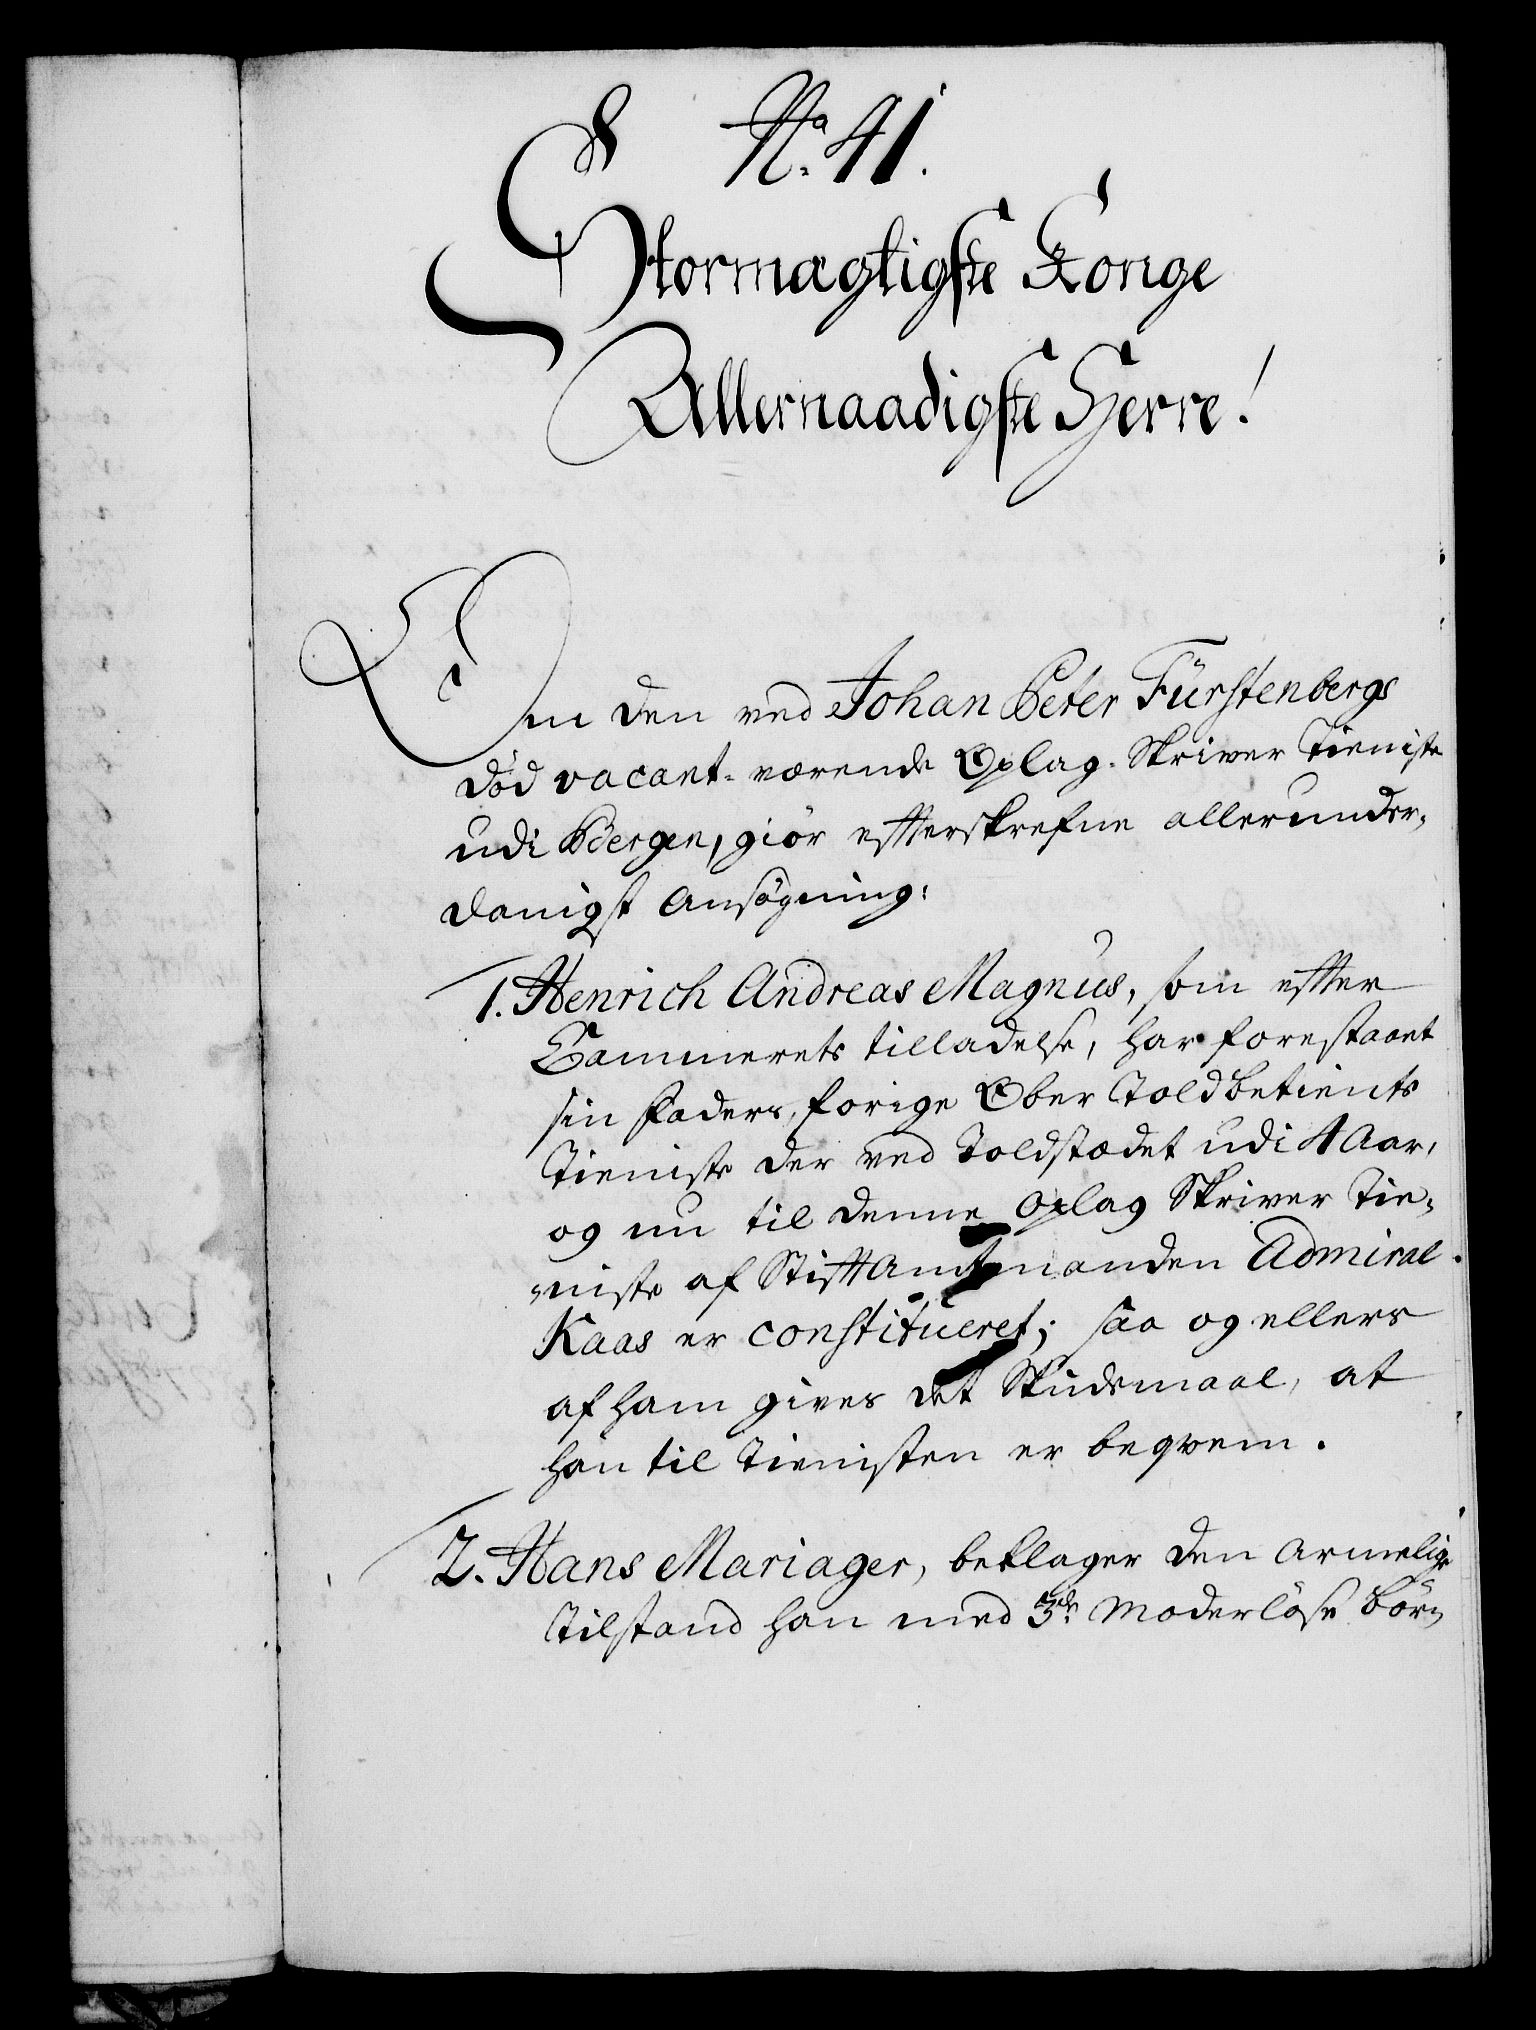 No. 41.
Stormægtigste Konge
Allernaadigste Herre!
Om den ved Johan Peter Fürstenbergs
död vacant-værende Oplag-Skriver Tieniste
udi Bergen, giör effterskrefne allerunder-
danigst Ansögning:
1. Henrich Andreas Magnus, som effter
Cammerets tilladelse, har forestaaet
sin Faders, forige Ober Toldbetients
Tieniste der ved Toldstædet udi 4 Aar,
og nu til denne Oplag Skriver Tie-
niste af Stifft Amtmanden Admiral
Kaas er constitueret; saa og ellers
af ham gives det Skudsmaal, at
han til Tienisten er beqvem.
2. Hans Mariager, beklager den armelige
Tilstand han med 3de moderlöse Börn